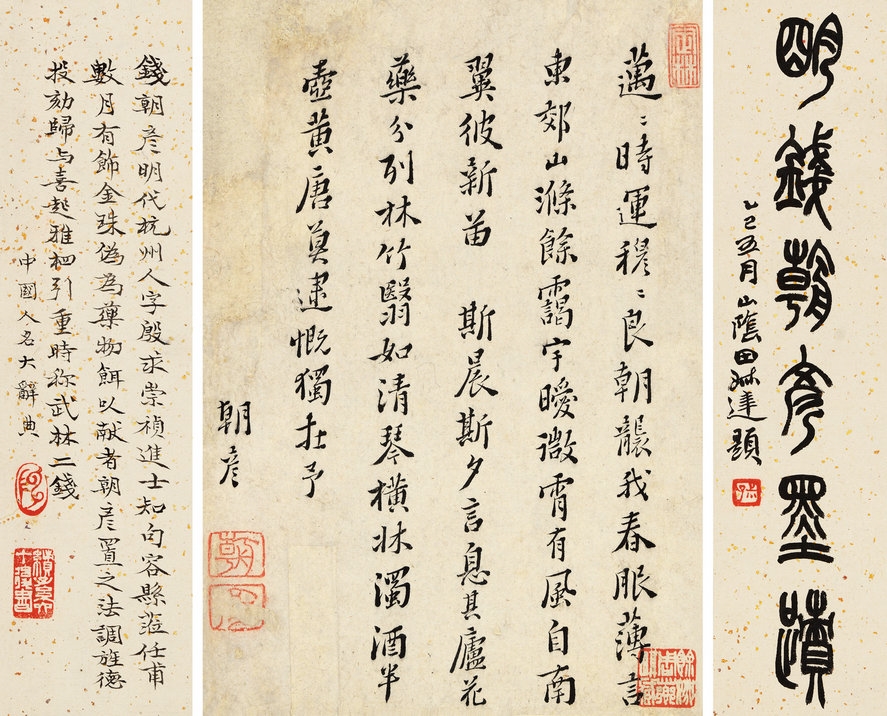 明錢朝彥墨蹟
乙巳五月山陰田
題
邁〻時運穆〻良朝襲我春服薄言
東郊山滌餘靄宇曖微霄有風自南
翼彼新苗 斯晨斯夕言息其廬花
藥分列林竹翳如清琴橫牀濁酒半
壺黃唐莫逮慨獨在予
朝彥
錢朝彥明代杭州人字殷求崇禎進士知句容縣蒞任甫
數月有飾金珠偽為藥物餌以献者朝彥置之法調旌德
投劾歸与喜起雅栖引重時称武林二錢
中國人名大辭典
朝